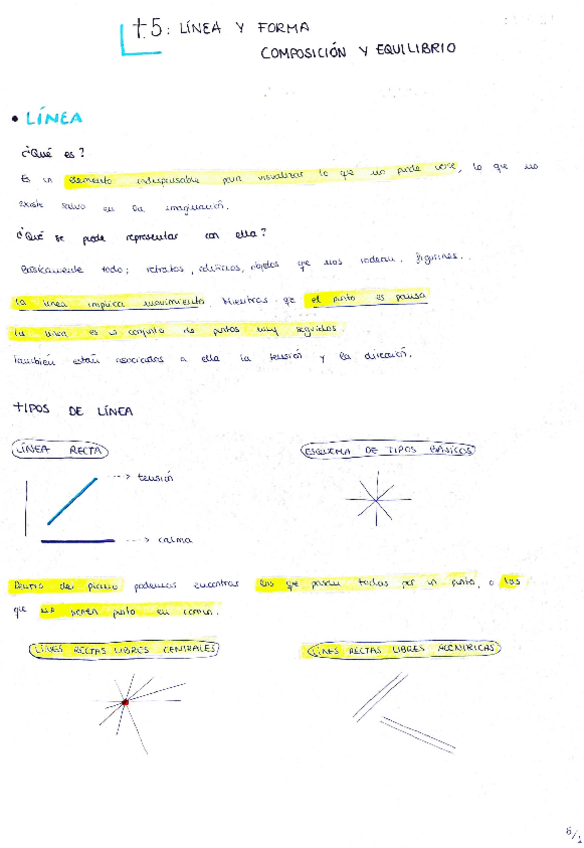 T.5: LÍNEA Y FORMA
COMPOSICIÓN Y EQUILIBRIO
• LÍNEA
¿Qué es?
Es un elemento indispensable para visualizar lo que no puede verse, lo que no
existe salvo en la imaginación.
¿Qué se puede representar con ella?
Básicamente todo; retratos, edificios, objetos que nos rodean, figurines...
La línea implica movimiento. Mientras que el punto es pausa
La línea es un conjunto de puntos muy seguidos.
También están asociados a ella la tensión y la dirección.
TIPOS DE LÍNEA
LÍNEA RECTA
ESQUEMA DE TIPOS BÁSICOS
---> tensión
---> calma
Dentro del plano podemos encontrar las que pasan todas por un punto, o las
que no tienen punto en común.
LÍNEAS RECTAS LIBRES CENTRALES
LÍNEAS RECTAS LIBRES ACÉNTRICAS